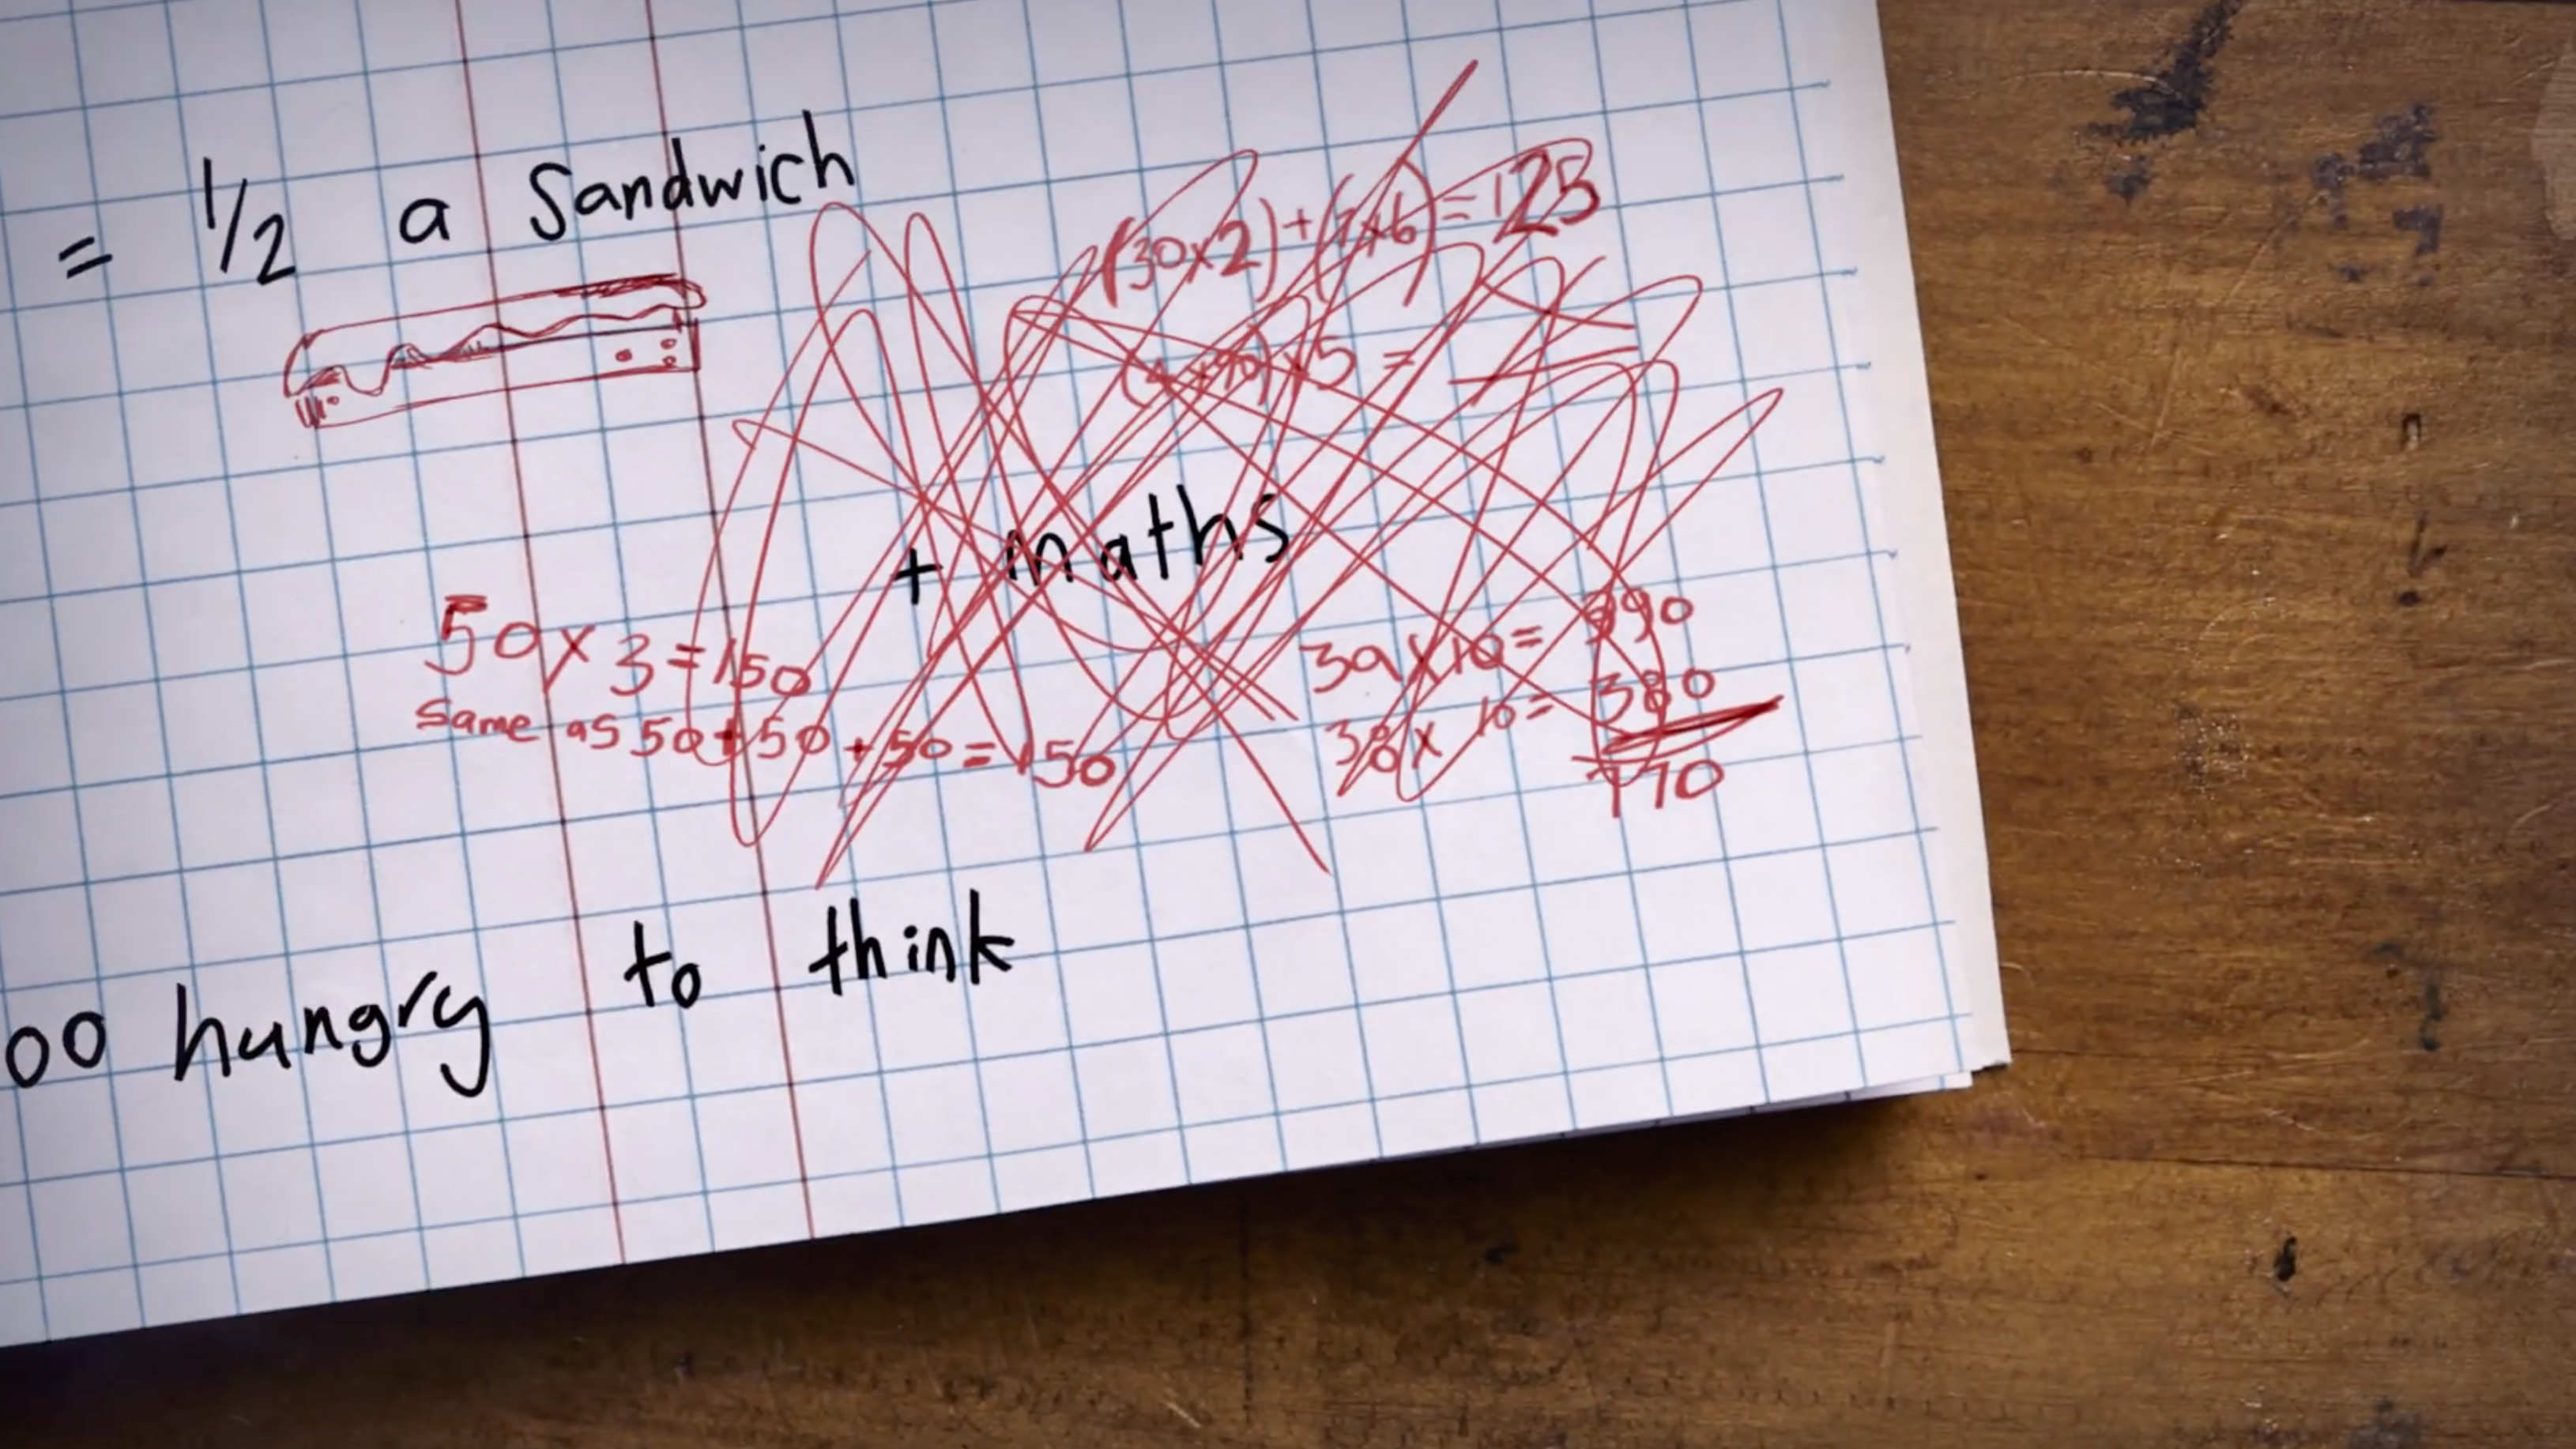 = 1/2 a Sandwich
(30x2)+(7x6)=123
x5 =
+ maths
50x3=150
Same as 50+50+50=150
39x10= 390
38x10= 380
770
oo hungry to think